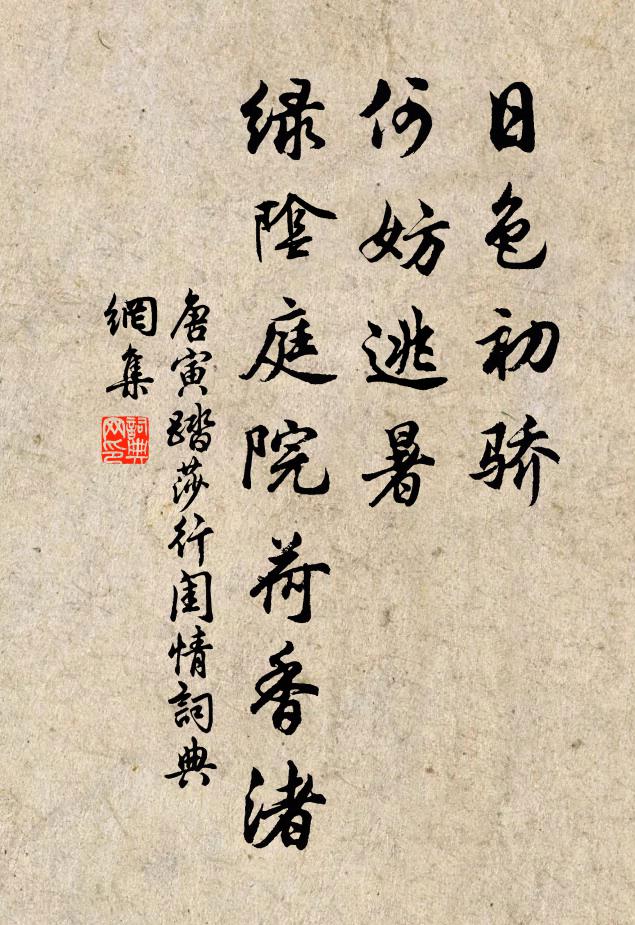 日色初骄
何妨逃暑
绿陰庭院荷香渚
唐寅踏莎行闺情詞典
網集
詞典
网印